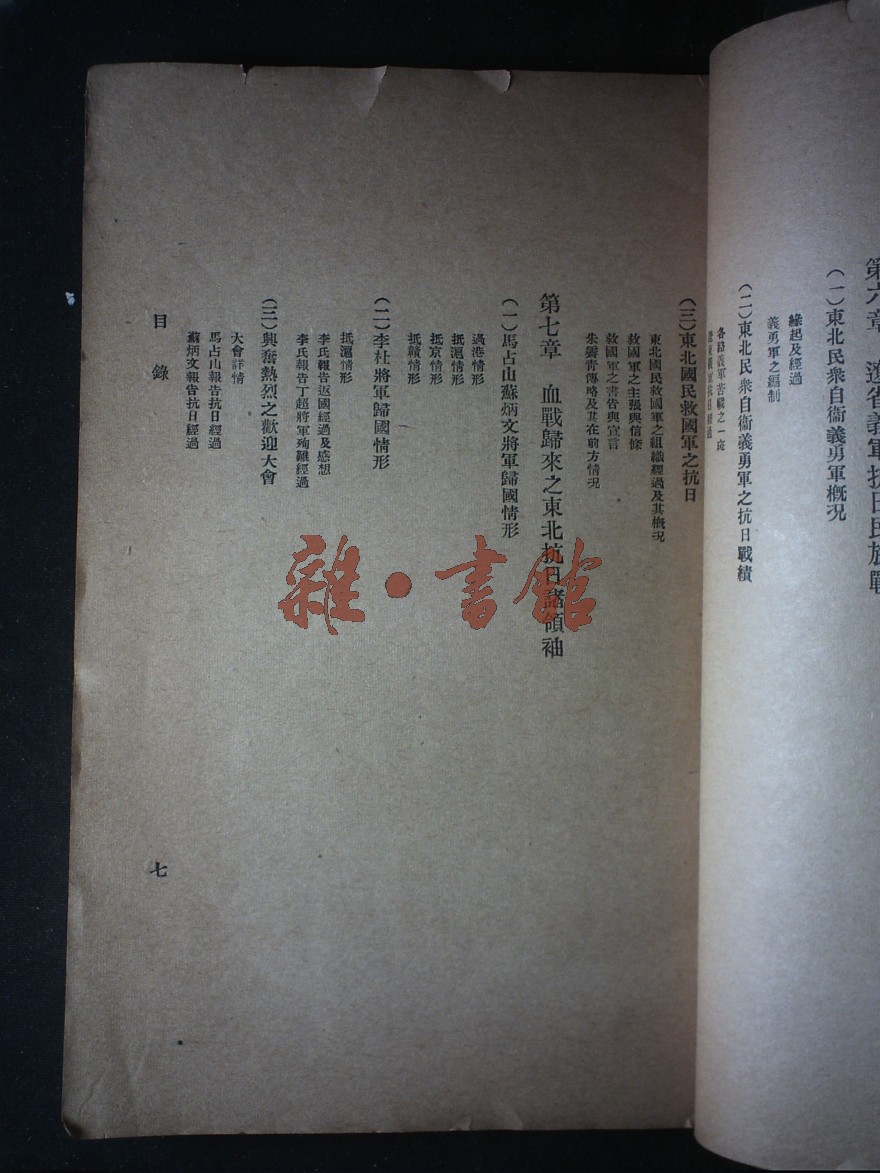 第六章　遼省義軍抗日民族戰
（一）東北民衆自衞義勇軍概況
緣起及經過
義勇軍之編制
（二）東北民衆自衞義勇軍之抗日戰績
各路義軍苦戰之一斑
（三）東北國民救國軍之抗日
東北國民救國軍之組織經過及其概況
救國軍之主張與信條
救國軍之書告與宣言
朱霽青傳略及其在前方情況
第七章　血戰歸來之東北抗日諸領袖
（一）馬占山蘇炳文將軍歸國情形
過港情形
抵滬情形
抵京情形
抵贛情形
（二）李杜將軍歸國情形
抵滬情形
李氏報告返國經過及感想
李氏報告丁超將軍殉難經過
（三）興奮熱烈之歡迎大會
大會詳情
馬占山報告抗日經過
蘇炳文報告抗日經過
目錄
七
雜·書館